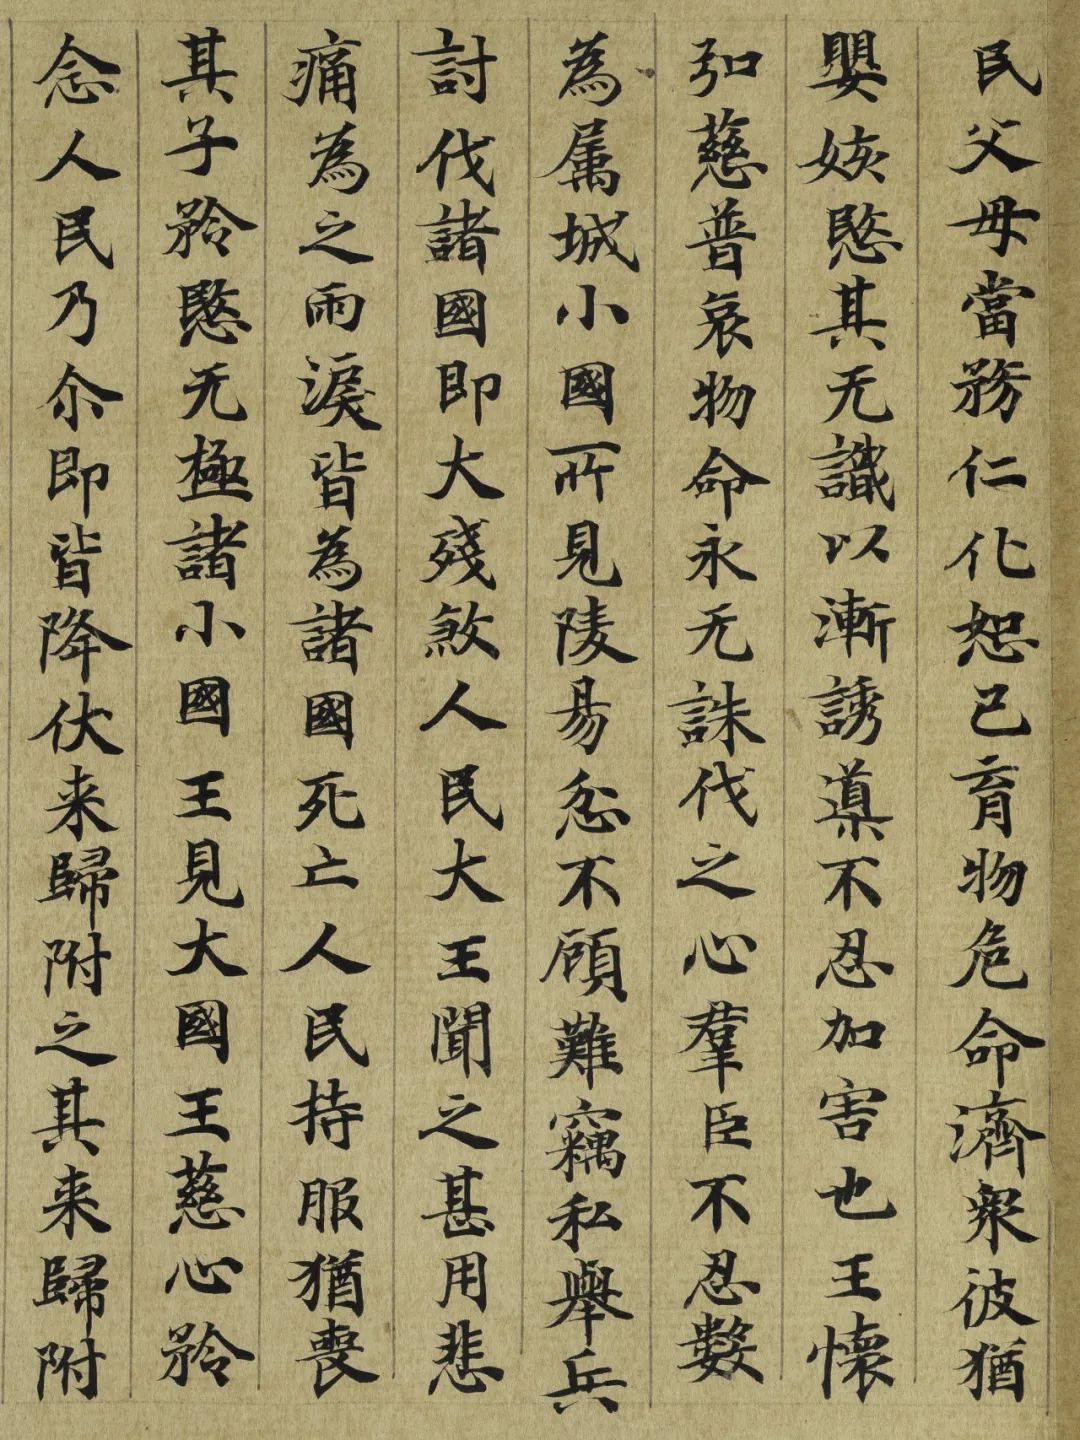 民父母當務仁化恕己育物危命濟衆彼猶
嬰孩愍其无識以漸誘導不忍加害也王懷
弘慈普哀物命永无誅伐之心羣臣不忍數
為属城小國所見陵易忿不顧難竊私舉兵
討伐諸國即大殘煞人民大王聞之甚用悲
痛為之雨淚皆為諸國死亡人民持服猶喪
其子矜愍无極諸小國王見大國王慈心矜
念人民乃尒即皆降伏来歸附之其来歸附